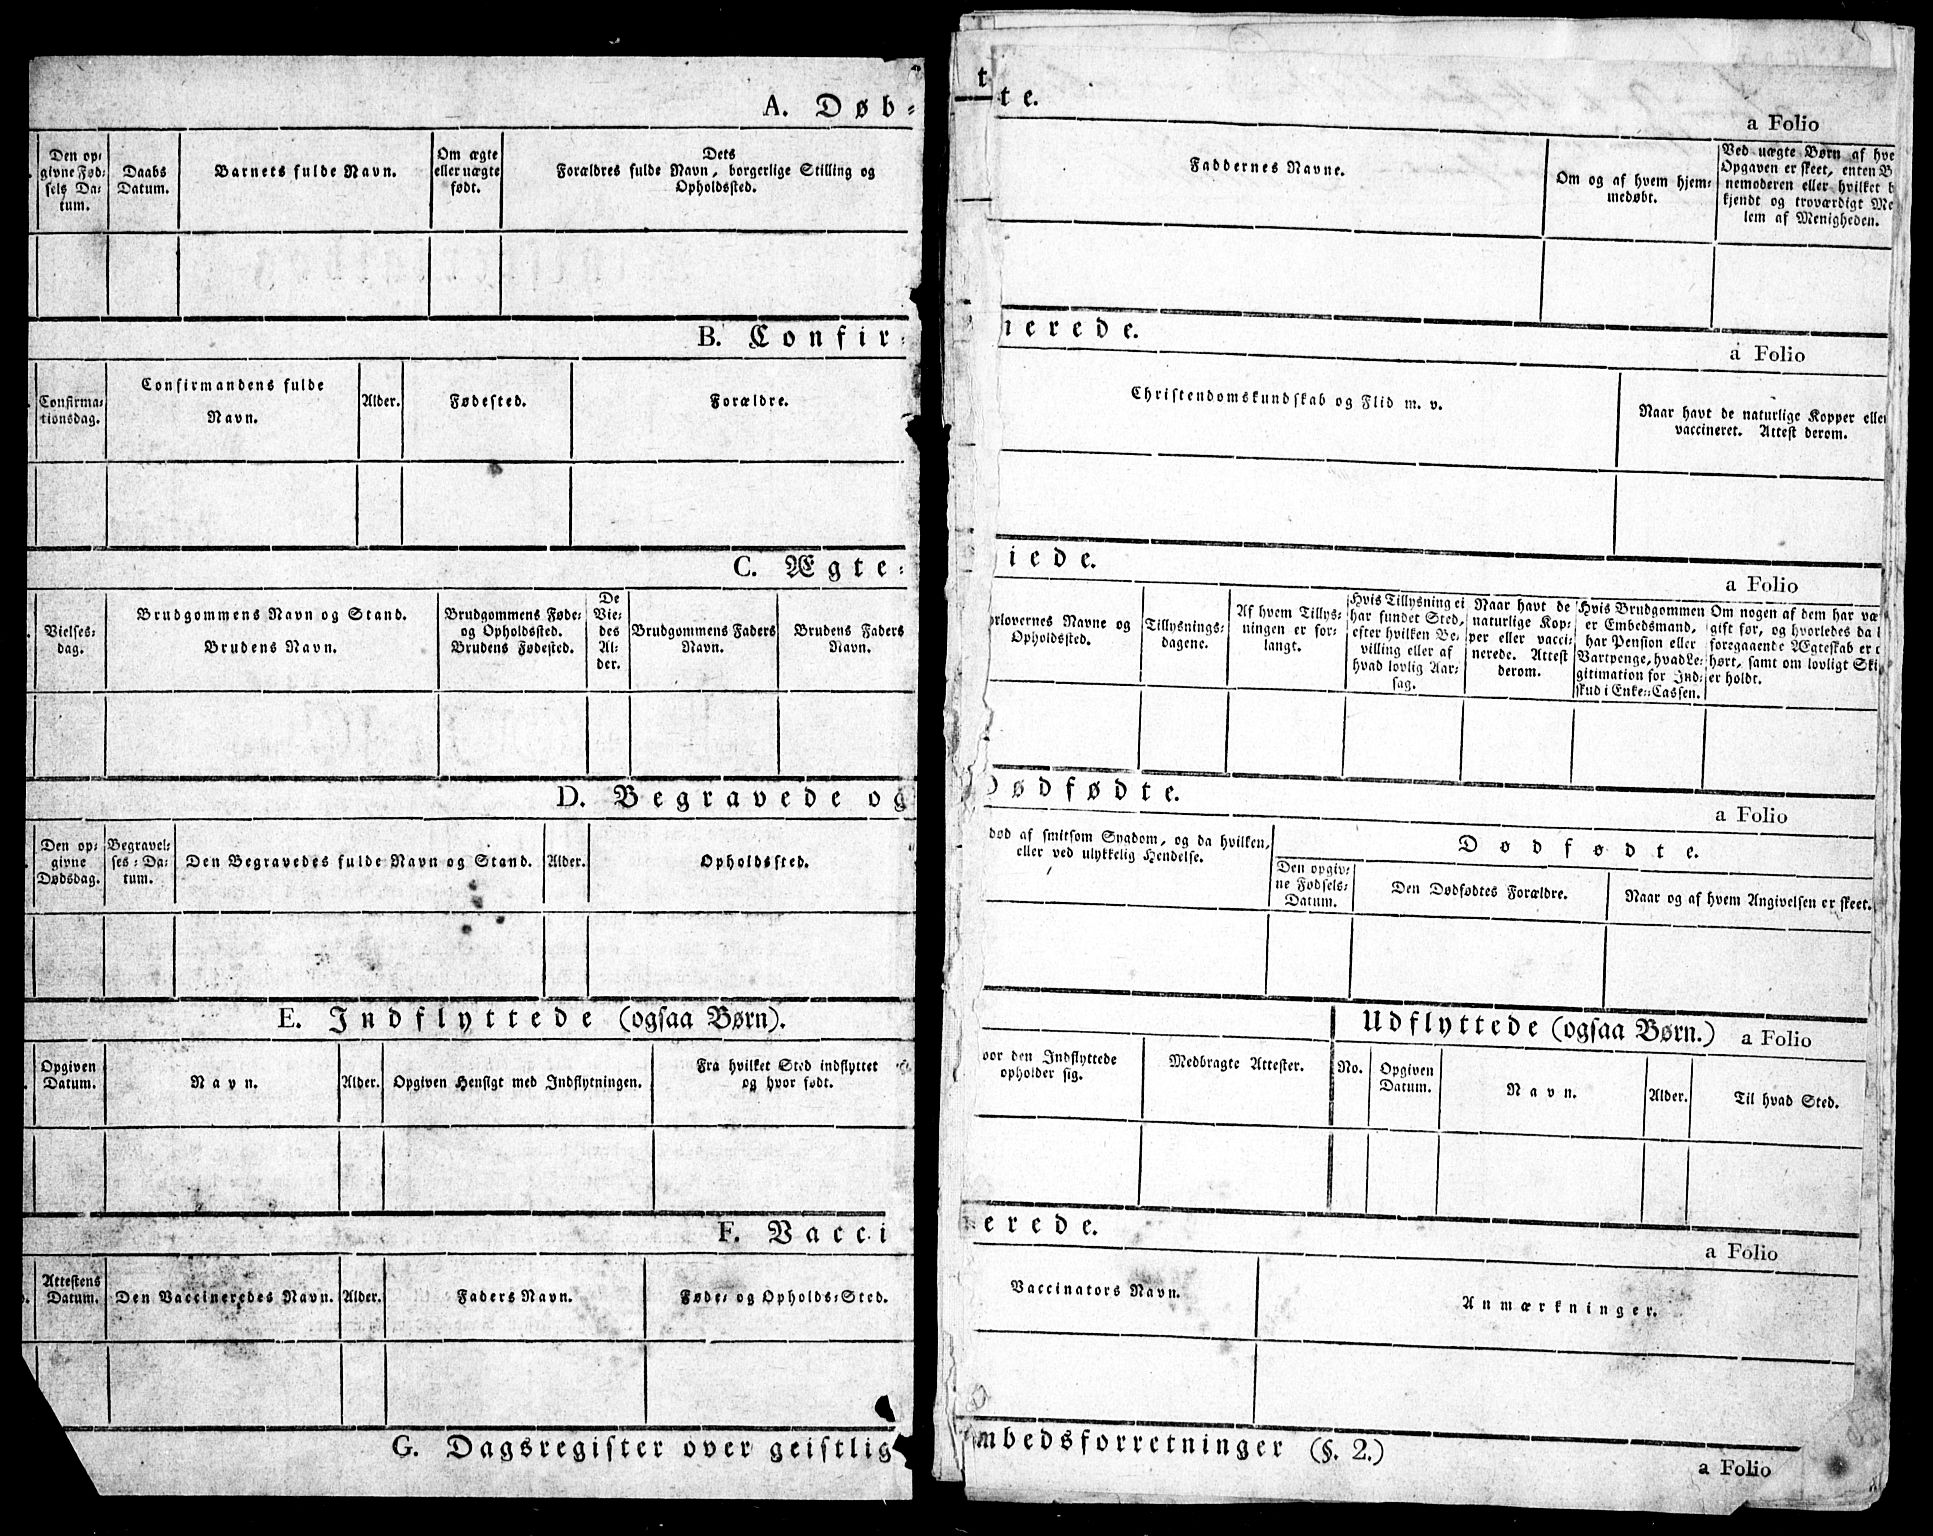 A. Døb-
Den op-
givne Fød-
sels Da-
tum.
Daabs
Datum.
Barnets fulde Navn.
Om ægte
eller uægte
født.
Dets
Forældres fulde Navn, borgerlige Stilling og
Opholdssted.
B. Confir-
Confirma-
tionsdag.
Confirmandens fulde
Navn.
Alder.
Fødested.
Forældre.
C. Ægte-
Vielses-
dag.
Brudgommens Navn og Stand.
Brudens Navn.
Brudgommens Føde-
og Opholdssted.
Brudens Fødested.
De
Vie-
des
Al-
der.
Brudgommens Faders
Navn.
Brudens Faders
Navn.
D. Begravede og
Den op-
givne
Dødsdag.
Begravel-
ses-Da-
tum.
Den Begravedes fulde Navn og Stand.
Alder.
Opholdssted.
E. Indflyttede (ogsaa Børn).
Opgiven
Datum.
Navn.
Alder.
Opgiven Hensigt med Indflytningen.
Fra hvilket Sted indflyttet
og hvor født.
F. Vacci
Attestens
Datum.
Den Vaccineredes Navn.
Alder.
Faders Navn.
Føde- og Opholds-Sted.
G. Dagsregister over geistlig
t
te.
a Folio
Faddernes Navne.
Om og af hvem hjem-
medøbt.
Ved uægte Børn af hve
Opgaven er skeet, enten B
nemoderen eller hvilket b
kjendt og troværdigt Me
lem af Menigheden.
nerede.
a Folio
Christendomskundskab og Flid m. v.
Naar havt de naturlige Kopper eller
vaccineret. Attest derom.
iede.
a Folio
orlovernes Navne og
Opholdssted.
Tillysnings-
dagene.
Af hvem Tillys-
ningen er for-
langt.
Hvis Tillysning ei
har fundet Sted,
efter hvilken Be-
villing eller af
hvad lovlig Aar-
sag.
Naar havt de
naturlige Kop-
per eller vacci-
nerede. Attest
derom.
Hvis Brudgommen
er Embedsmand,
har Pension eller
Vartpenge, hvad Le-
gitimation for Ind-
skud i Enke-Cassen.
Om nogen af dem har væ
gift før, og hvorledes da
foregaaende Ægteskab er
hørt, samt om lovligt Ski
er holdt.
Dødfødte.
a Folio
død af smitsom Sygdom, og da hvilken,
eller ved ulykkelig Hendelse.
Dødfødte.
Den opgiv-
ne Fødsels-
Datum.
Den Dødfødtes Forældre.
Naar og af hvem Angivelsen er skeet.
Udflyttede (ogsaa Børn.) a Folio
vor den Indflyttede
opholder sig.
Medbragte Attester.
No.
Opgiven
Datum.
Navn.
Alder.
Til hvad Sted.
nerede.
a Folio
Vaccinators Navn.
Anmærkninger.
mbedsforretninger (§. 2.)
a Folio